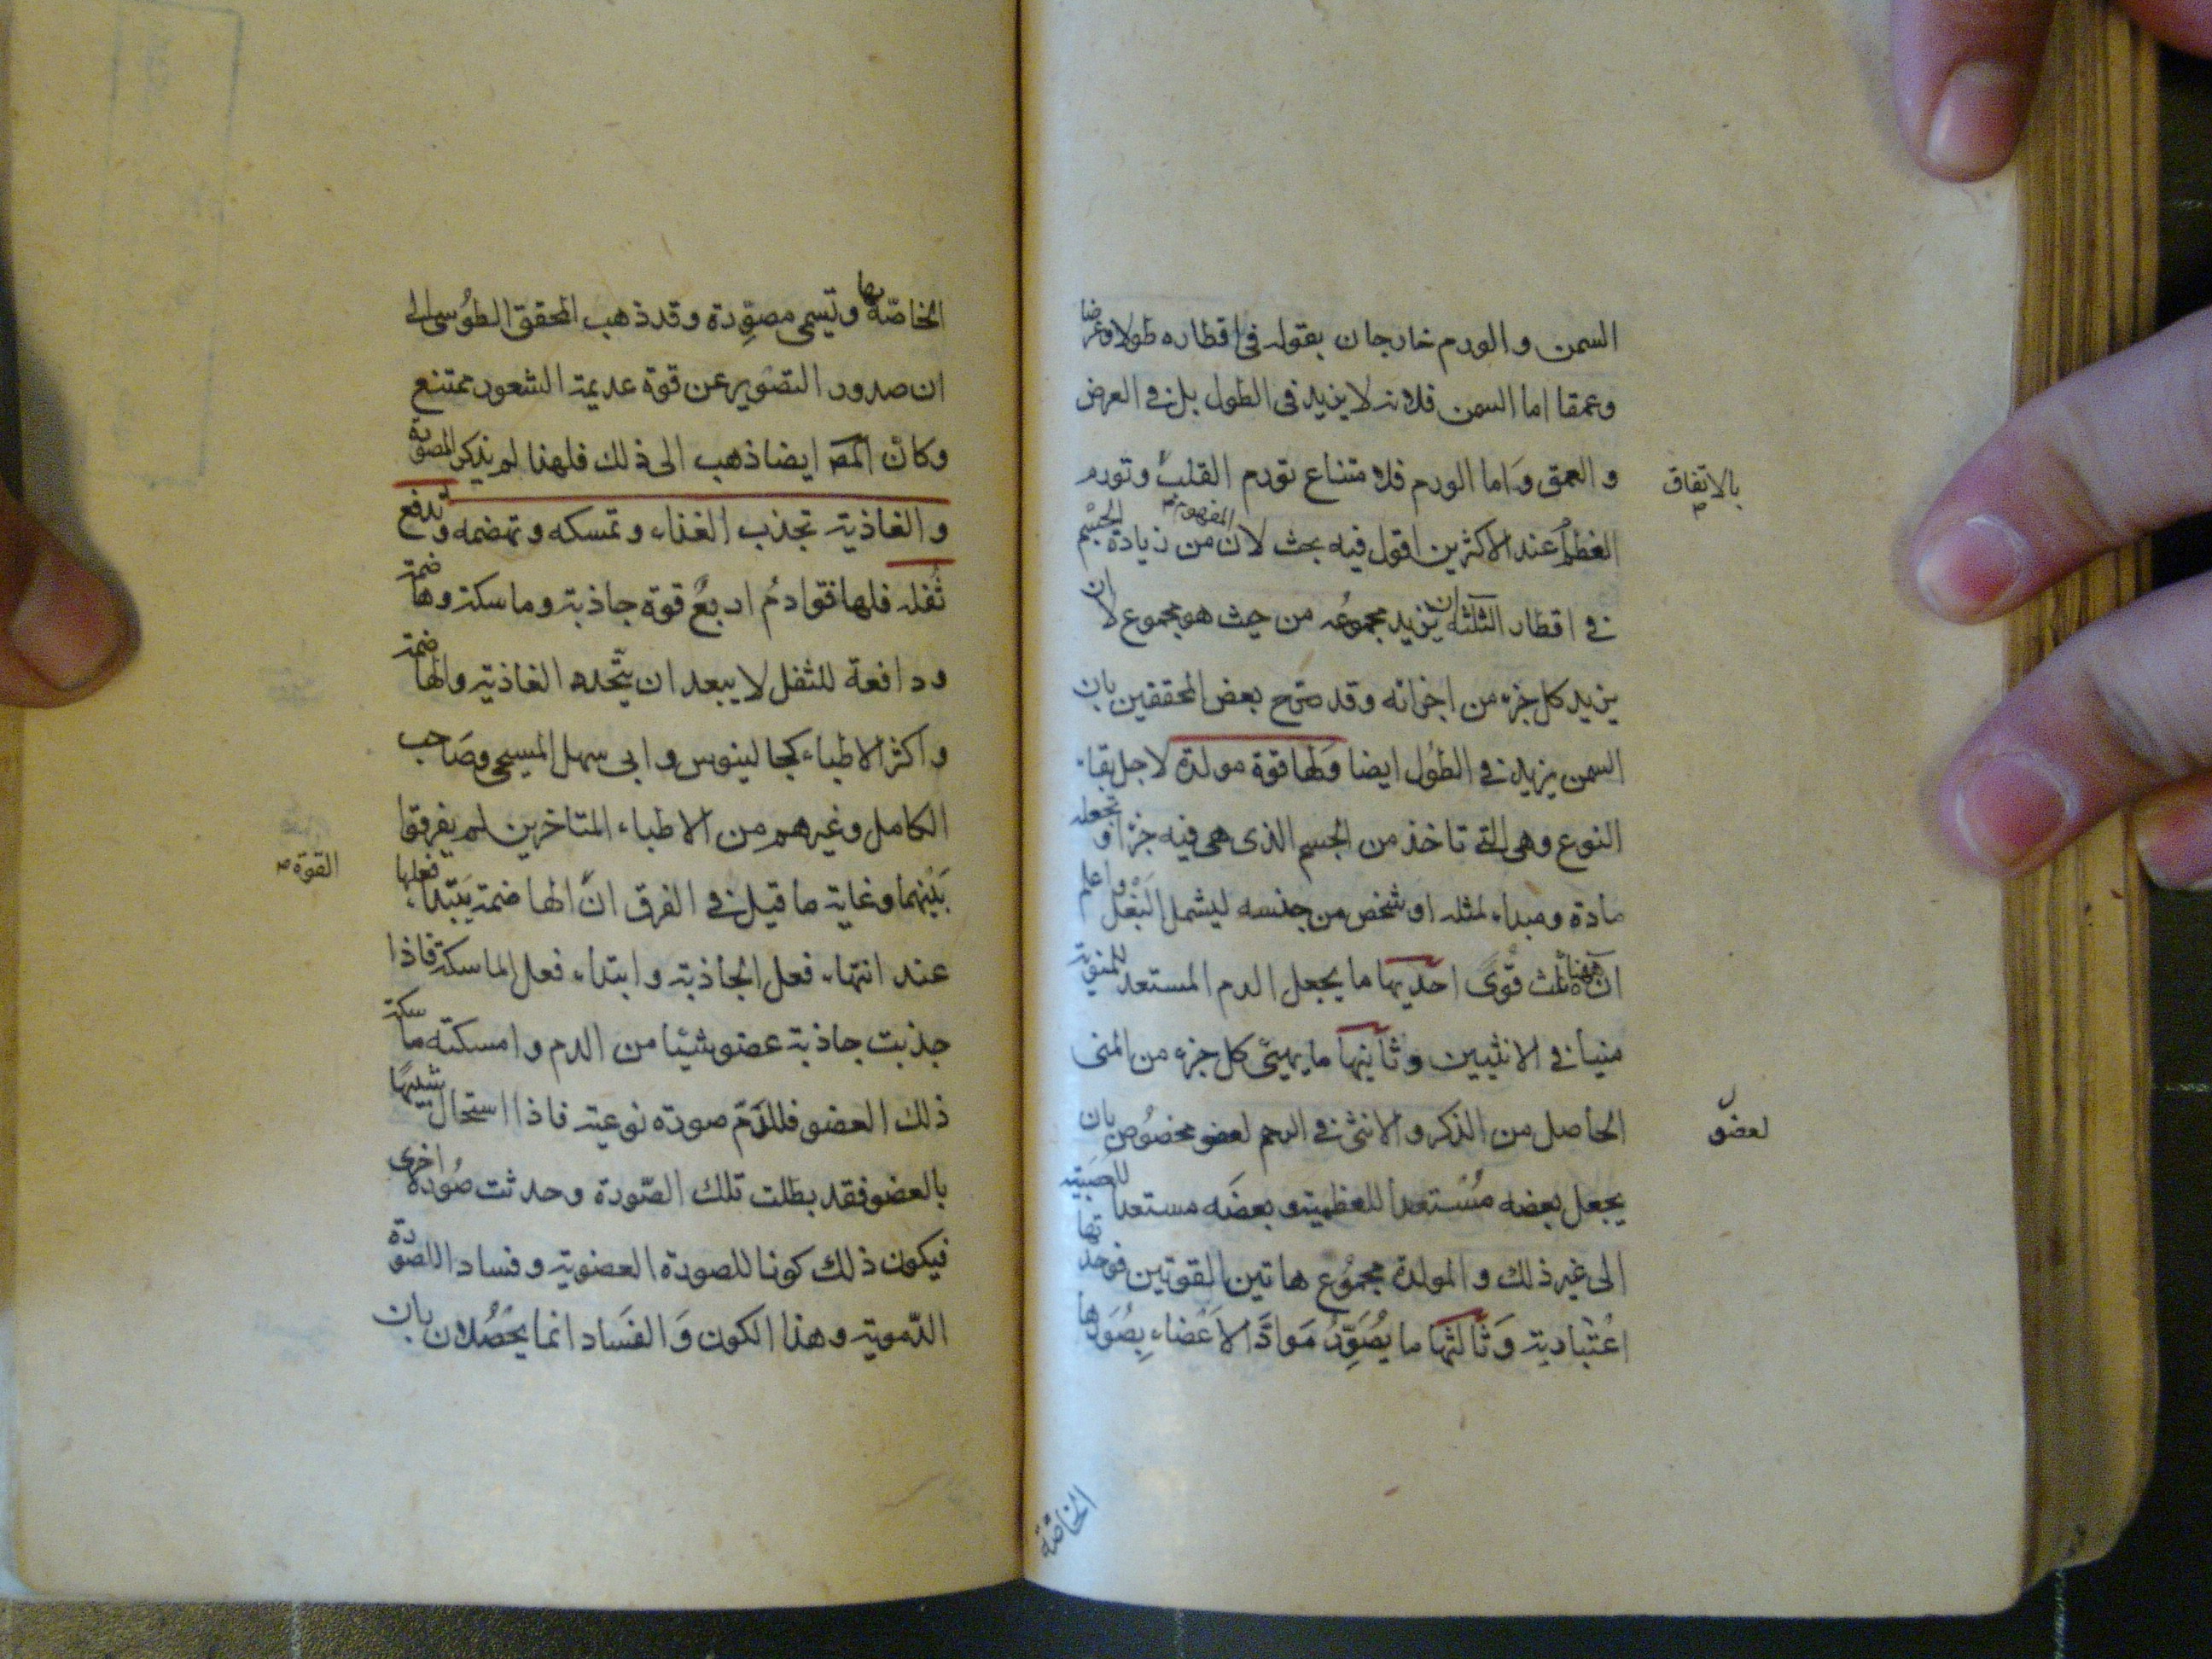 السمن والورم خارجان بقوله فى اقطاره طولا وعرضا
وعمقا اما السمن فلانه لا يزيد فى الطول بل فى العرض
والعمق وَاما الورم فلامتناع تورم القلب وتورم
بالاتفاق
العظم عند الاكثرين اقول فيه بحث لان المفهوم من زيادة الجسم
فى اقطار الثلثة ان يزيد مجموعُه من حيث هو مجموع لا ان
يزيد كل جزء من اجزائه وقد صرّح بعض المحققين بان
السمن يزيد فى الطوُل ايضا وَلها قوة مولدة لاجل بقاء
النوع وهى التى تاخذ من الجسم الذى هى فيه جزءا وتجعله
مادة ومبداء لمثله او شخص من جنسه ليشمل البَغْل واعلم
انّ ههنا ثلث قوًى احديها ما يجعل الدم المستعد للمنوية
منيا فى الانثيين وثانيتها ما يهيّئ كل جزء من المنى
الحاصل من الذكر والانثى فى الرحم لعضو مخصُوص بان
لعضو
يجعل بعضه مُسْتعدا للعظمية وبعضَه مستعدا للعصَبية
الى غير ذلك والمولدة مجموُع هاتين القوتين فوحدتها
اعُتبارية وَثالثتها ما يُصَوِّرُ مَوادَّ الاَعْضاء بِصُوَرها
الخاصّة
الخاصّة بها وتسمى مصوِّرة وقد ذهب المحقق الطوُسى الى
ان صدور التصوير عن قوة عديمة الشعور ممتنع
وكانّ المصـ ايضا ذهب الى ذلك فلهذا لم يذكر المصورة
والغاذية تجذب الغذاء وتمسكه وتهضمه وتدفع
ثُفله فلها خوادمُ اربعٌ قوة جاذبة وماسكة وهاضمة
ودافعة للثفل لا يبعد ان يتّحد الغاذية والهاضمة
واكثر الاطباء كجالينوس وابى سهل المسيحى وصَاحب
الكامل وغيرهم من الاطباء المتاخرين لم يفرقوا
بَيْنهما وغاية ما قيل فى الفرق انّ الهاضمة يَبْتدا فعلها
القوة
عند انتهاء فعل الجاذبة وابتداء فعل الماسكة فاذا
جذبت جاذبة عضو شيئا من الدم وامسكته ماسكة
ذلك العضو فللدّم صورة نوعية فاذا استحال شبيهًا
بالعضو فقد بطلت تلك الصّورة وحدثت صُورة اخرى
فيكون ذلك كونا للصورة العضوية وفسادا للصورة
الدّموية وهذا الكون وَالفسَاد انما يحَصُلان بان